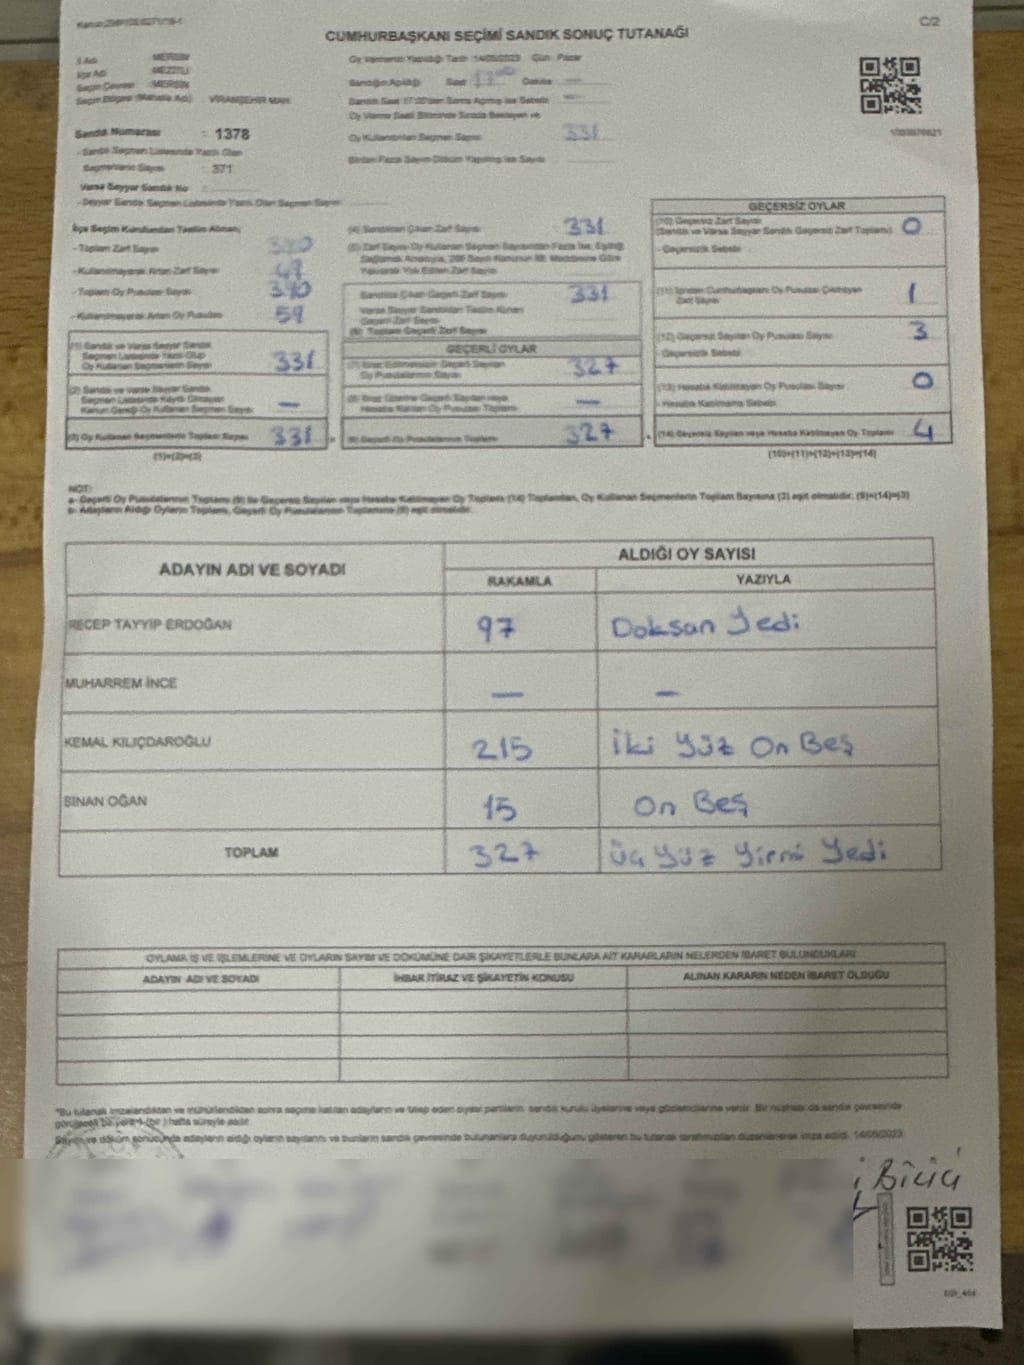 C/2
CUMHURBAŞKANI SEÇİMİ SANDIK SONUÇ TUTANAĞI
İl Adı : MERSİN
İlçe Adı : MEZİTLİ
Seçim Çevresi : MERSİN
Seçim Bölgesi (Mahalle Adı) : VİRANŞEHİR MAH.
Sandık Numarası : 1378
- Sandık Seçmen Listesinde Yazılı Olan
Seçmenlerin Sayısı : 371
Varsa Seyyar Sandık No :
- Seyyar Sandık Seçmen Listesinde Yazılı Olan Seçmen Sayısı
Oy Vermenin Yapıldığı Tarih : 14/05/2023 Gün : Pazar
Sandığın Açıldığı Saat Dakika
Sandık Saat 17:00'den Sonra Açılmış İse Sebebi
Oy Verme Saati Bitiminde Sırada Bekleyen ve
Oy Kullandırılan Seçmen Sayısı 331
Birden Fazla Sayım Döküm Yapılmış İse Sayısı
İlçe Seçim Kurulundan Teslim Alınan;
- Toplam Zarf Sayısı
- Kullanılmayarak Artan Zarf Sayısı
- Toplam Oy Pusulası Sayısı 390
- Kullanılmayarak Artan Oy Pusulası 59
(1) Sandık ve Varsa Seyyar Sandık
Seçmen Listesinde Yazılı Olup
Oy Kullanan Seçmenlerin Sayısı 331
(2) Sandık ve Varsa Seyyar Sandık
Seçmen Listesinde Kayıtlı Olmayan
Kanun Gereği Oy Kullanan Seçmen Sayısı —
(3) Oy Kullanan Seçmenlerin Toplam Sayısı 331
(1)+(2)=(3)
(4) Sandıktan Çıkan Zarf Sayısı 331
(5) Zarf Sayısı Oy Kullanan Seçmen Sayısından Fazla İse, Eşitliği
Sağlamak Amacıyla, 298 Sayılı Kanunun 98. Maddesine Göre
Yakılarak Yok Edilen Zarf Sayısı
Sandıkta Çıkan Geçerli Zarf Sayısı 331
Varsa Seyyar Sandıktan Teslim Alınan
Geçerli Zarf Sayısı
(6) Toplam Geçerli Zarf Sayısı
GEÇERLİ OYLAR
(7) İtiraz Edilmeksizin Geçerli Sayılan
Oy Pusulalarının Sayısı 327
(8) İtiraz Üzerine Geçerli Sayılan veya
Hesaba Katılan Oy Pusulası Toplamı —
(9) Geçerli Oy Pusulalarının Toplamı 327
GEÇERSİZ OYLAR
(10) Geçersiz Zarf Sayısı 0
(Sandık ve Varsa Seyyar Sandık Geçersiz Zarf Toplamı)
- Geçersizlik Sebebi
(11) İçinden Cumhurbaşkanı Oy Pusulası Çıkmayan
Zarf Sayısı 1
(12) Geçersiz Sayılan Oy Pusulası Sayısı 3
- Geçersizlik Sebebi
(13) Hesaba Katılmayan Oy Pusulası Sayısı 0
- Hesaba Katılmama Sebebi
(14) Geçersiz Sayılan veya Hesaba Katılmayan Oy Toplamı 4
(10)+(11)+(12)+(13)=(14)
NOT:
a- Geçerli Oy Pusulalarının Toplamı (9) ile Geçersiz Sayılan veya Hesaba Katılmayan Oy Toplamı (14) Toplamları, Oy Kullanan Seçmenlerin Toplam Sayısına (3) eşit olmalıdır. (9)+(14)=(3)
b- Adayların Aldığı Oyların Toplamı, Geçerli Oy Pusulalarının Toplamına (9) eşit olmalıdır.
ADAYIN ADI VE SOYADI ALDIĞI OY SAYISI
RAKAMLA YAZIYLA
RECEP TAYYİP ERDOĞAN 97 Doksan Yedi
MUHARREM İNCE — —
KEMAL KILIÇDAROĞLU 215 İki Yüz On Beş
SİNAN OĞAN 15 On Beş
TOPLAM 327 Üç Yüz Yirmi Yedi
OYLAMA İŞ VE İŞLEMLERİNE VE OYLARIN SAYIM VE DÖKÜMÜNE DAİR ŞİKAYETLERLE BUNLARA AİT KARARLARIN NELERDEN İBARET BULUNDUKLARI
ADAYIN ADI VE SOYADI İHBAR İTİRAZ VE ŞİKAYETİN KONUSU ALINAN KARARIN NEDEN İBARET OLDUĞU
*Bu tutanak imzalandıktan ve mühürlendikten sonra seçime katılan adayların ve talep eden siyasi partilerin sandık kurulu üyelerine veya gözlemcilerine verilir. Bir nüshası da sandık çevresinde
görülecek bir yere 1 (bir) hafta süreyle asılır.
Sayım ve döküm sonucunda adayların aldığı oyların sayılarını ve bunların sandık çevresinde bulunanlara duyurulduğunu gösteren bu tutanak tarafımızdan düzenlenerek imza edildi. 14/05/2023